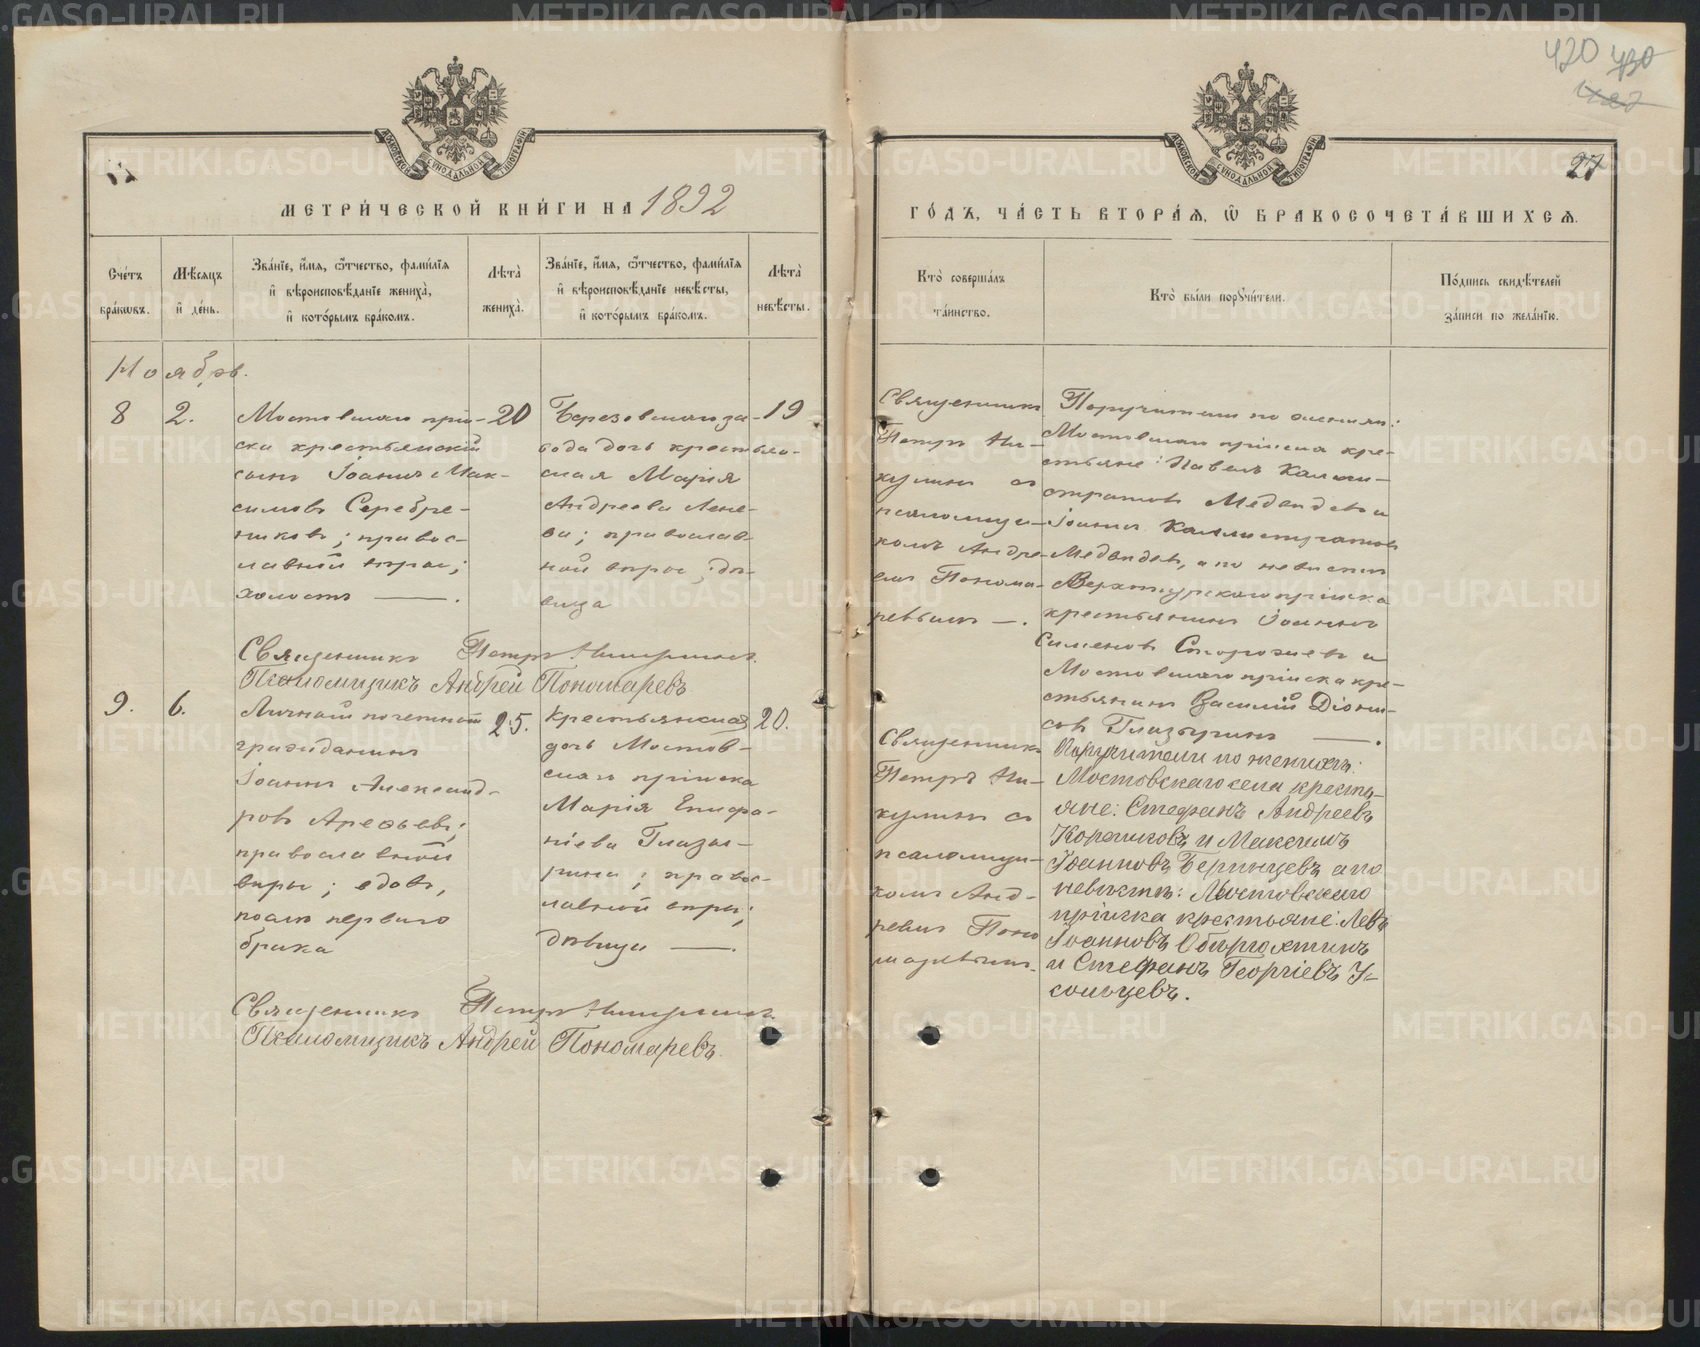 420 430
27
МЕТРИ́ЧЕСКОЙ КНИ́ГИ НА 1892
ГО́ДЪ, ЧА́СТЬ ВТОРА́Ѧ, Ѿ БРАКОСОЧЕТА́ВШИХСѦ.
Сче́тъ бра́кѡвъ.
Мѣ́сяцъ и҆ де́нь.
Зва́нїе, и҆́мя, ѻ҆́тчество, фами́лїя
и҆ вѣроисповѣ́данїе жениха̀,
и҆ кото́рымъ бра́комъ.
Лѣта̀
жениха̀.
Зва́нїе, и҆́мя, ѻ҆́тчество, фами́лїя
и҆ вѣроисповѣ́данїе невѣ́сты,
и҆ кото́рымъ бра́комъ.
Лѣта̀
невѣ́сты.
Кто̀ соверша́лъ
та́инство.
Кто̀ бы́ли порꙋчи́тели.
По́дпись свидѣ́телей
за́писи по жела́нїю.
Ноябрь.
8
2.
Мостовскаго прі-
ска крестьянскій
сынъ Іоаннъ Мак-
симовъ Серебре-
никовъ; правос-
лавной вѣры;
холостъ —.
20
Березовскаго за-
вода дочь крестьян-
ская Марія
Андреева Лене-
ва; православ-
ной вѣры; дѣ-
вица
19
Священникъ
Петръ Ни-
кулинъ съ
псаломщи-
комъ Андре-
емъ Понома-
ревымъ —.
Поручители по женихѣ:
Мостовскаго пріиска кре-
стьяне: Павелъ Калли-
стратовъ Медвѣдевъ и
Іоаннъ Каллистратовъ
Медвѣдевъ, а по невѣстѣ
Верхотурскаго пріиска
крестьянинъ Іоаннъ
Симеоновъ Сторожевъ и
Мостовскаго пріиска кре-
стьянинъ Василій Діони-
сіевъ Глазыринъ —.
Священникъ Петръ Никулинъ.
Псаломщикъ Андрей Пономаревъ
9.
6.
Личный почетный
гражданинъ
Іоаннъ Александ-
ровъ Арефьевъ;
православной
вѣры; вдовъ,
послѣ перваго
брака
25.
Крестьянская
дочь Мостов-
скаго пріиска
Марія Епифа-
ніева Глазы-
рина; правос-
лавной вѣры;
дѣвица —.
20.
Священникъ
Петръ Ни-
кулинъ съ
псаломщи-
комъ Анд-
реемъ Поно
маревымъ.
Поручители по женихѣ:
Мостовскаго села кресть-
яне: Стефанъ Андреевъ
и Максимъ
Іоанновъ а по
невѣстѣ: Мостовскаго
пріиска крестьяне: Левъ
Іоанновъ
и Стефанъ Георгіевъ У-
сольцевъ.
Священникъ Петръ Никулинъ.
Псаломщикъ Андрей Пономаревъ.
METRIKI.GASO-URAL.RU